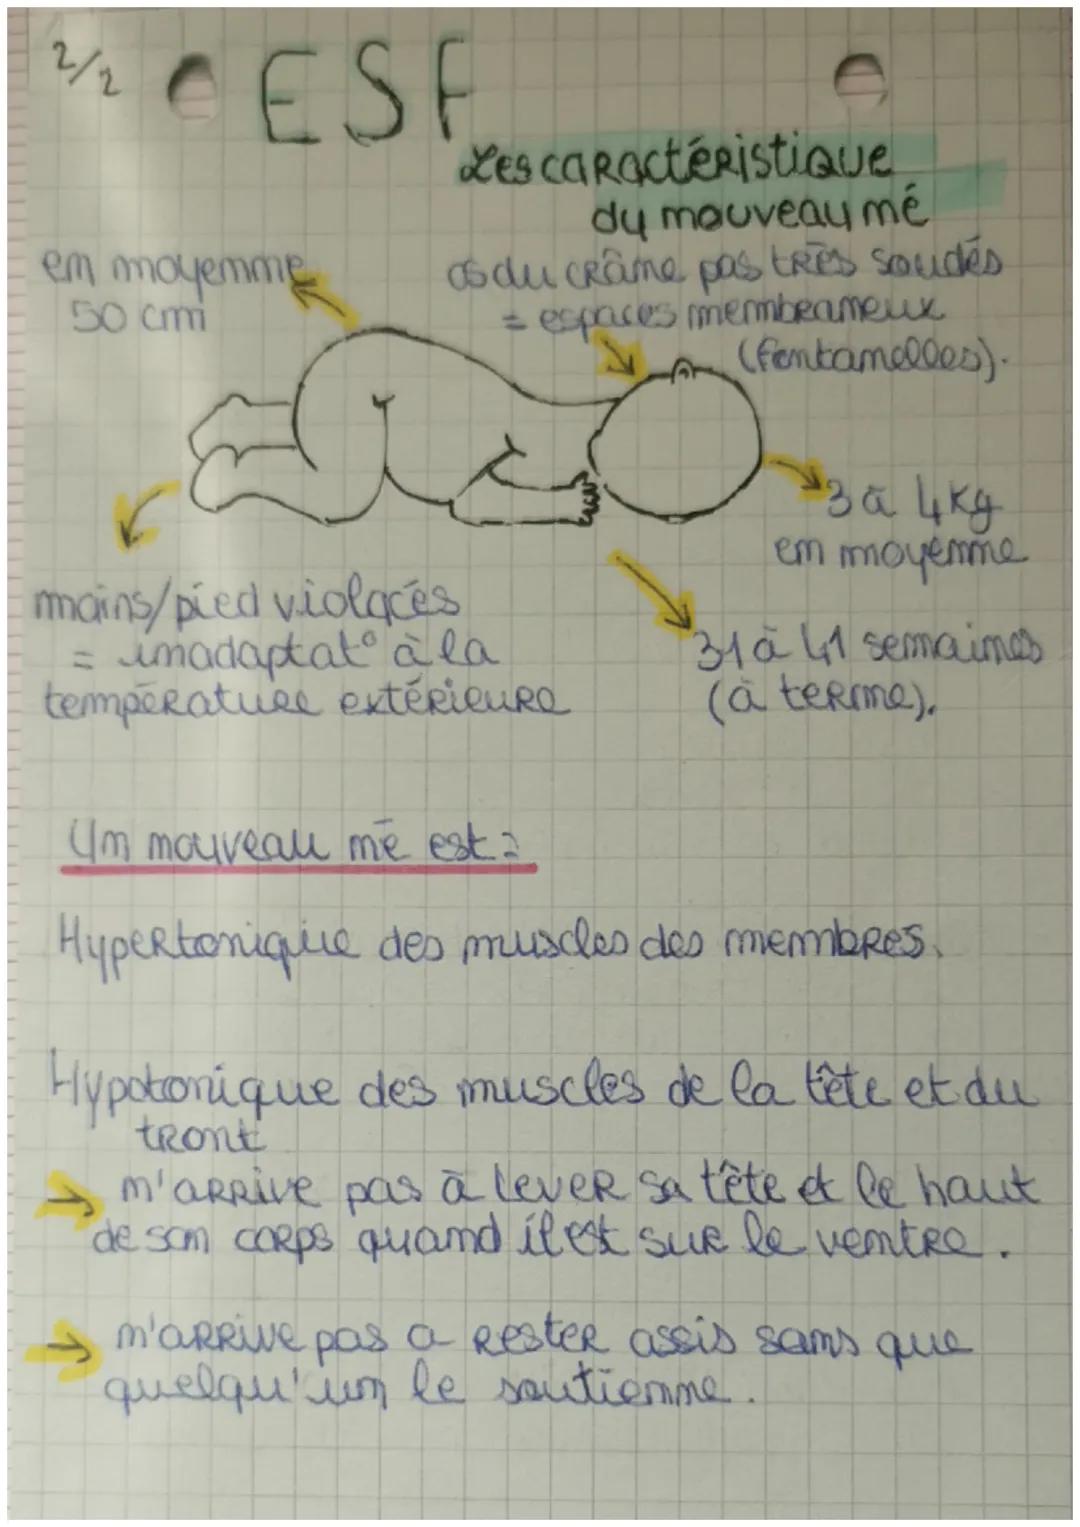 2/2 ESF
Les caractéristique
du nouveau né
en moyenne
50 cm
os du crâne pas très soudés
= espaces membraneux
(fontanelles).
3 à 4 kg
en moyenne
mains/pied violacés
= inadaptat° à la
température extérieure
31 à 41 semaines
(à terme).
Un nouveau né est :
Hypertonique des muscles des membres.
Hypotonique des muscles de la tête et du
tront
→ n'arrive pas à lever sa tête et le haut
de son corps quand il est sur le ventre.
→ n'arrive pas a rester assis sans que
quelqu'un le soutienne.